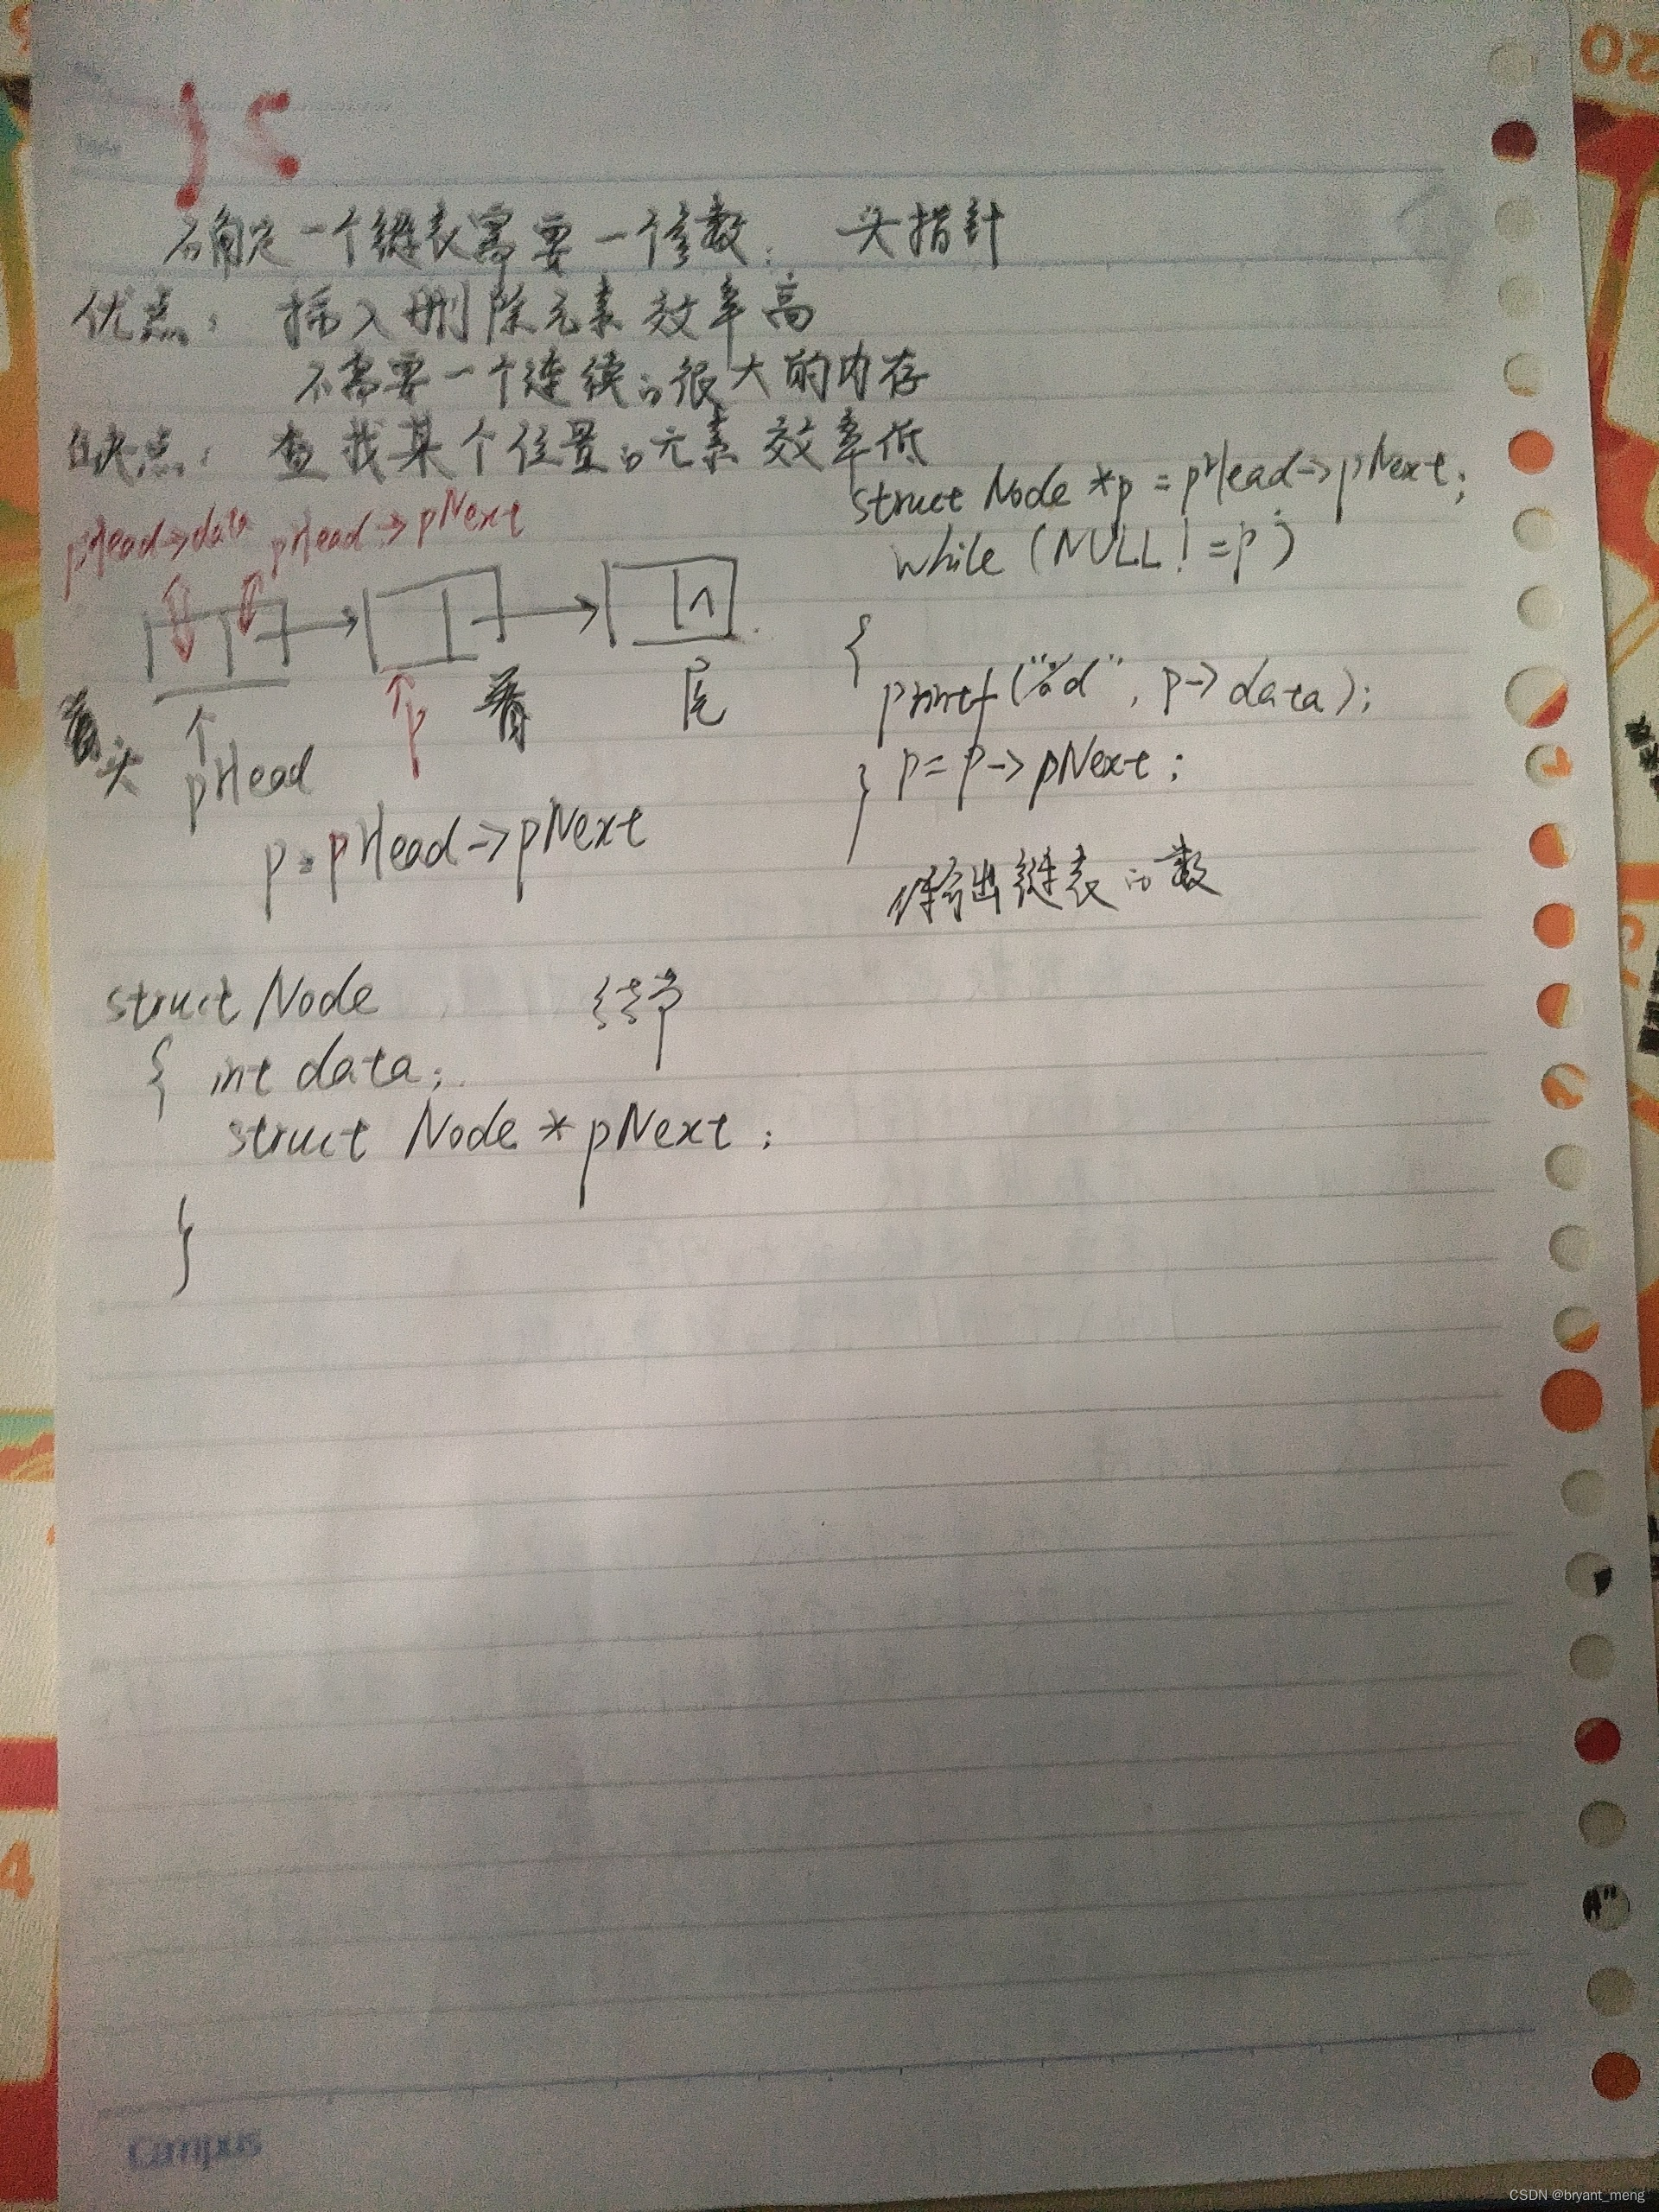 15
确定一个链表需要一个参数： 头指针
优点： 插入删除元素效率高
不需要一个连续的很大的内存
缺点： 查找某个位置的元素效率低
pHead->data pHead->pNext
首 尾
头 pHead p
p=pHead->pNext
struct Node *p = pHead->pNext;
while (NULL != p)
{
printf("%d", p->data);
p = p->pNext;
}
输出链表的数
struct Node 结节
{ int data;
struct Node * pNext;
}
Campus
20
4
CSDN @bryant_meng